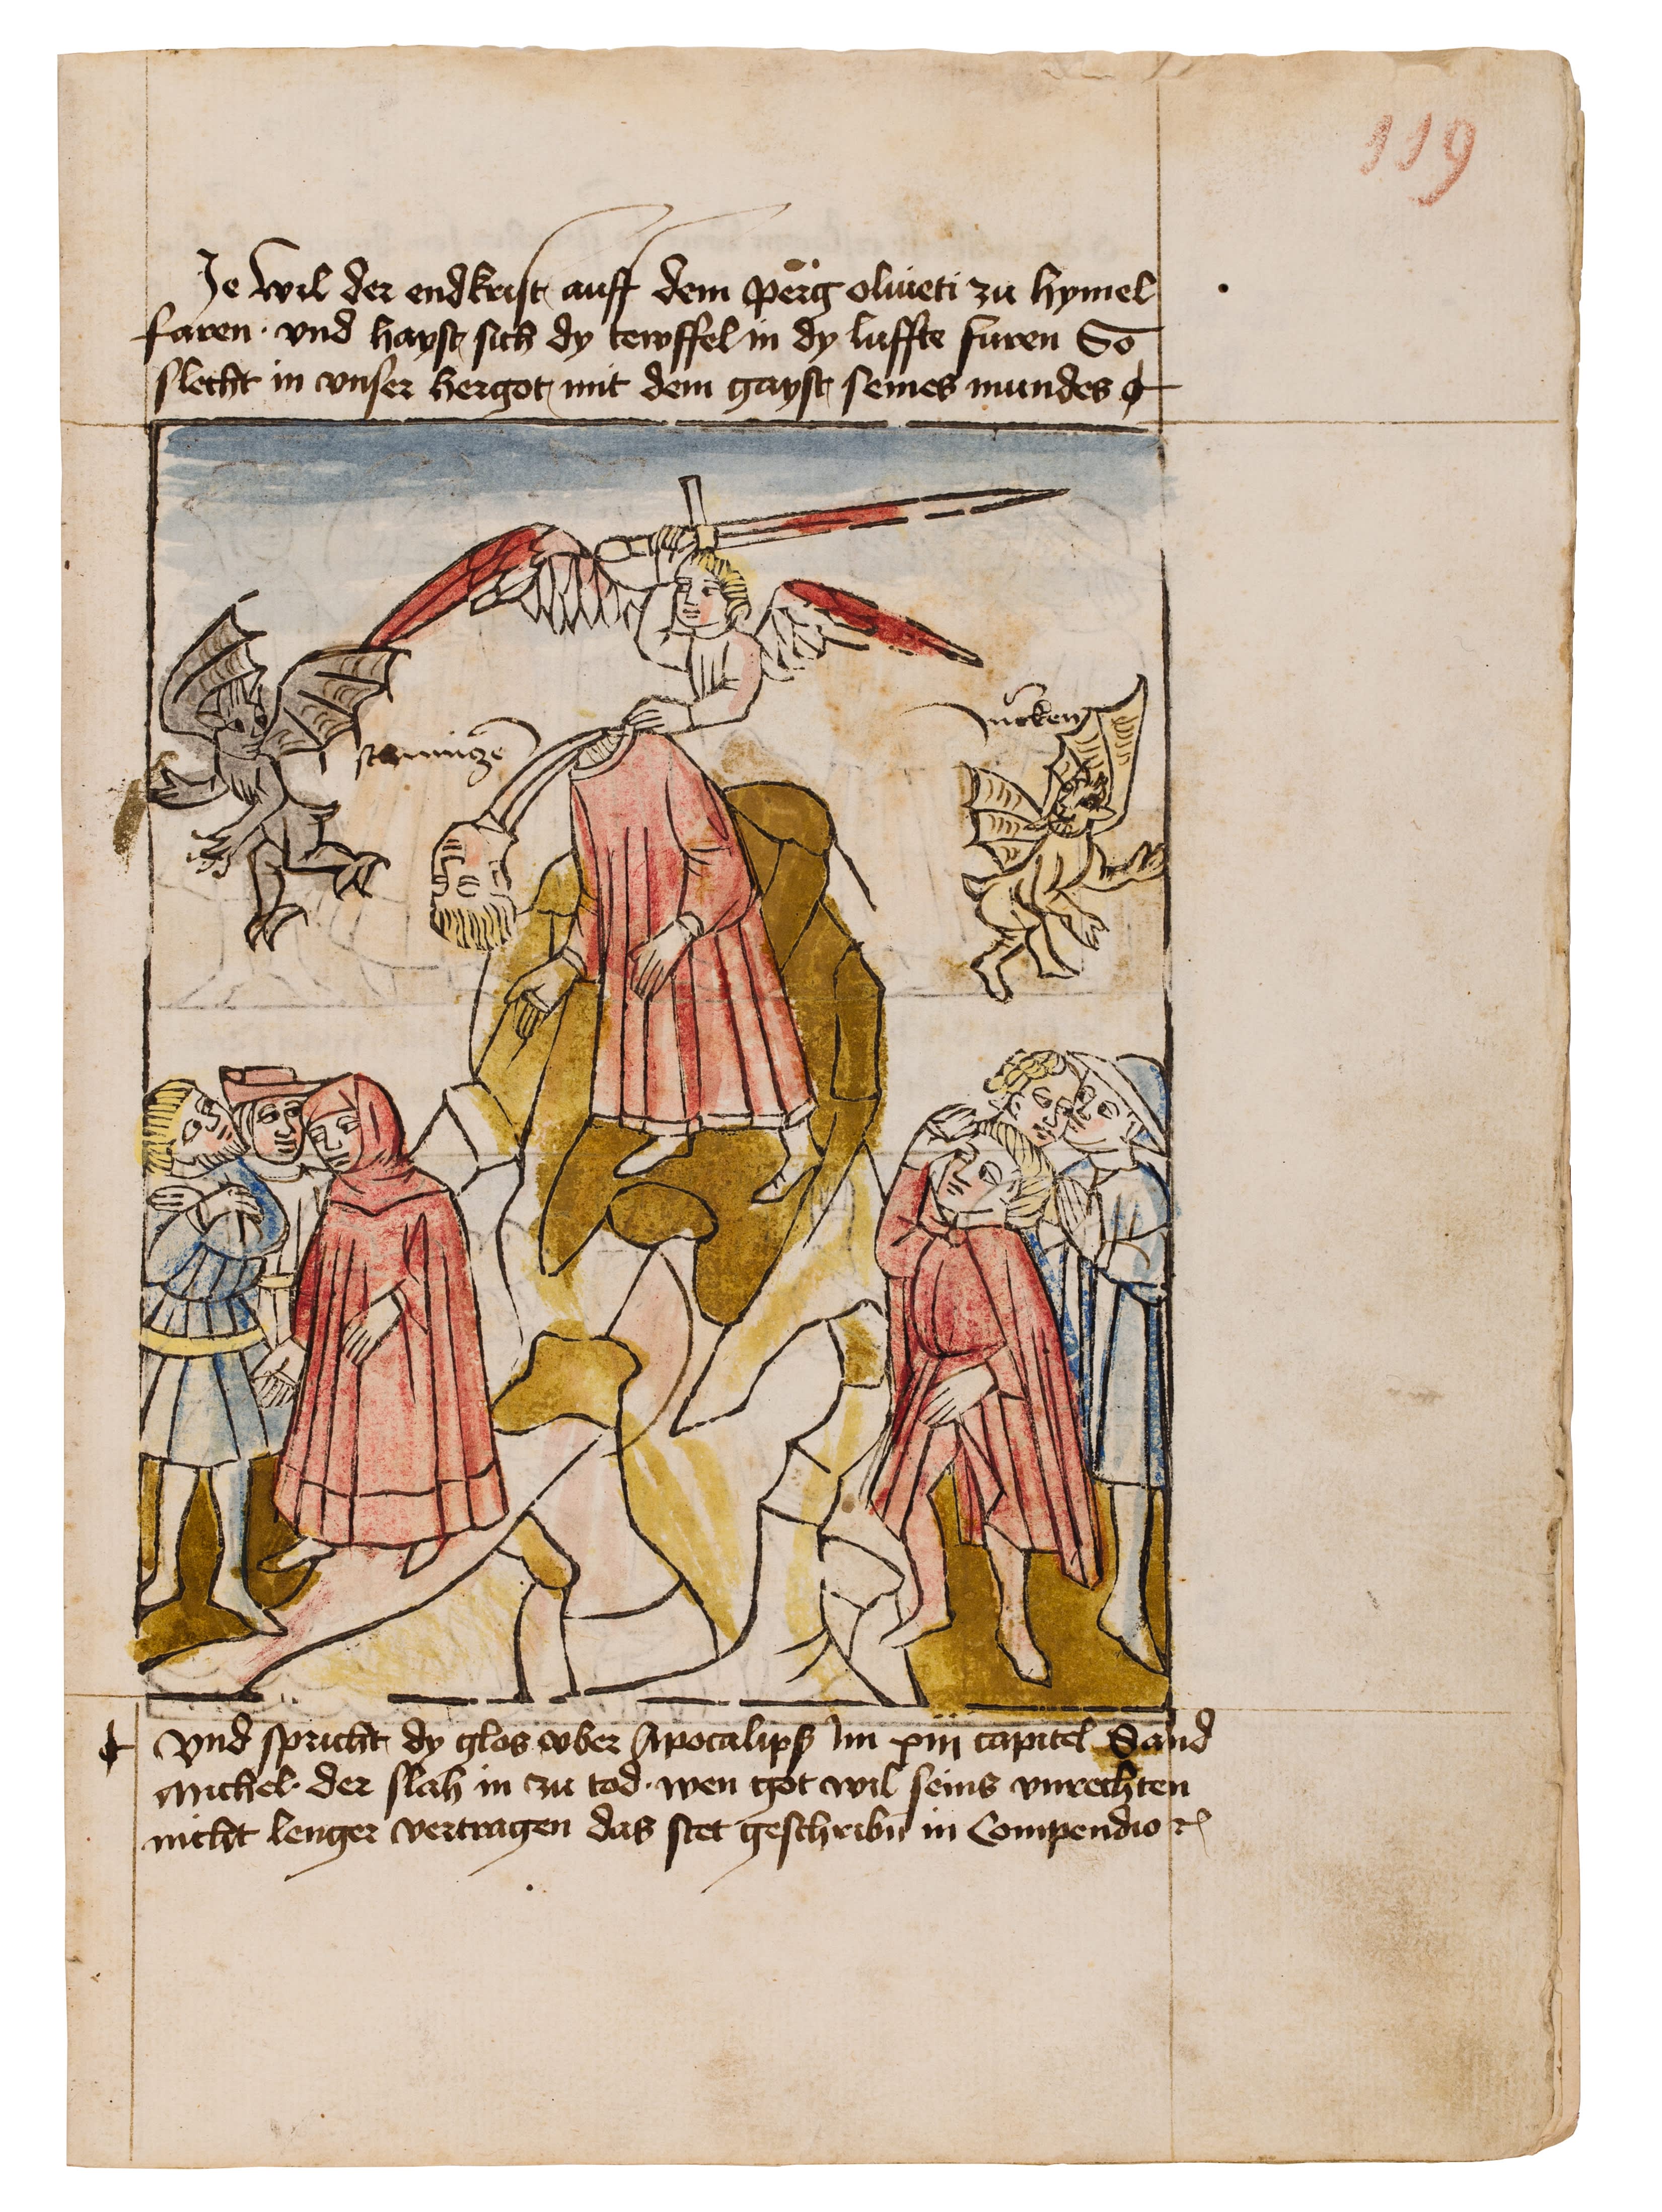 119
Je wil der endkrist auff dem perg oliueti zu hymel
faren · vnd hayst sich dy tewffel in dy luffte furen So
slecht in vnser hergot mit dem gayst seines mundes
vnd spricht dy glos vber Apocalips im xiii capitel Sand
Michel · der slah in zu tod · wen got wil seins vnrechten
nicht lenger vertragen das stet geschribn̄ in Compendio